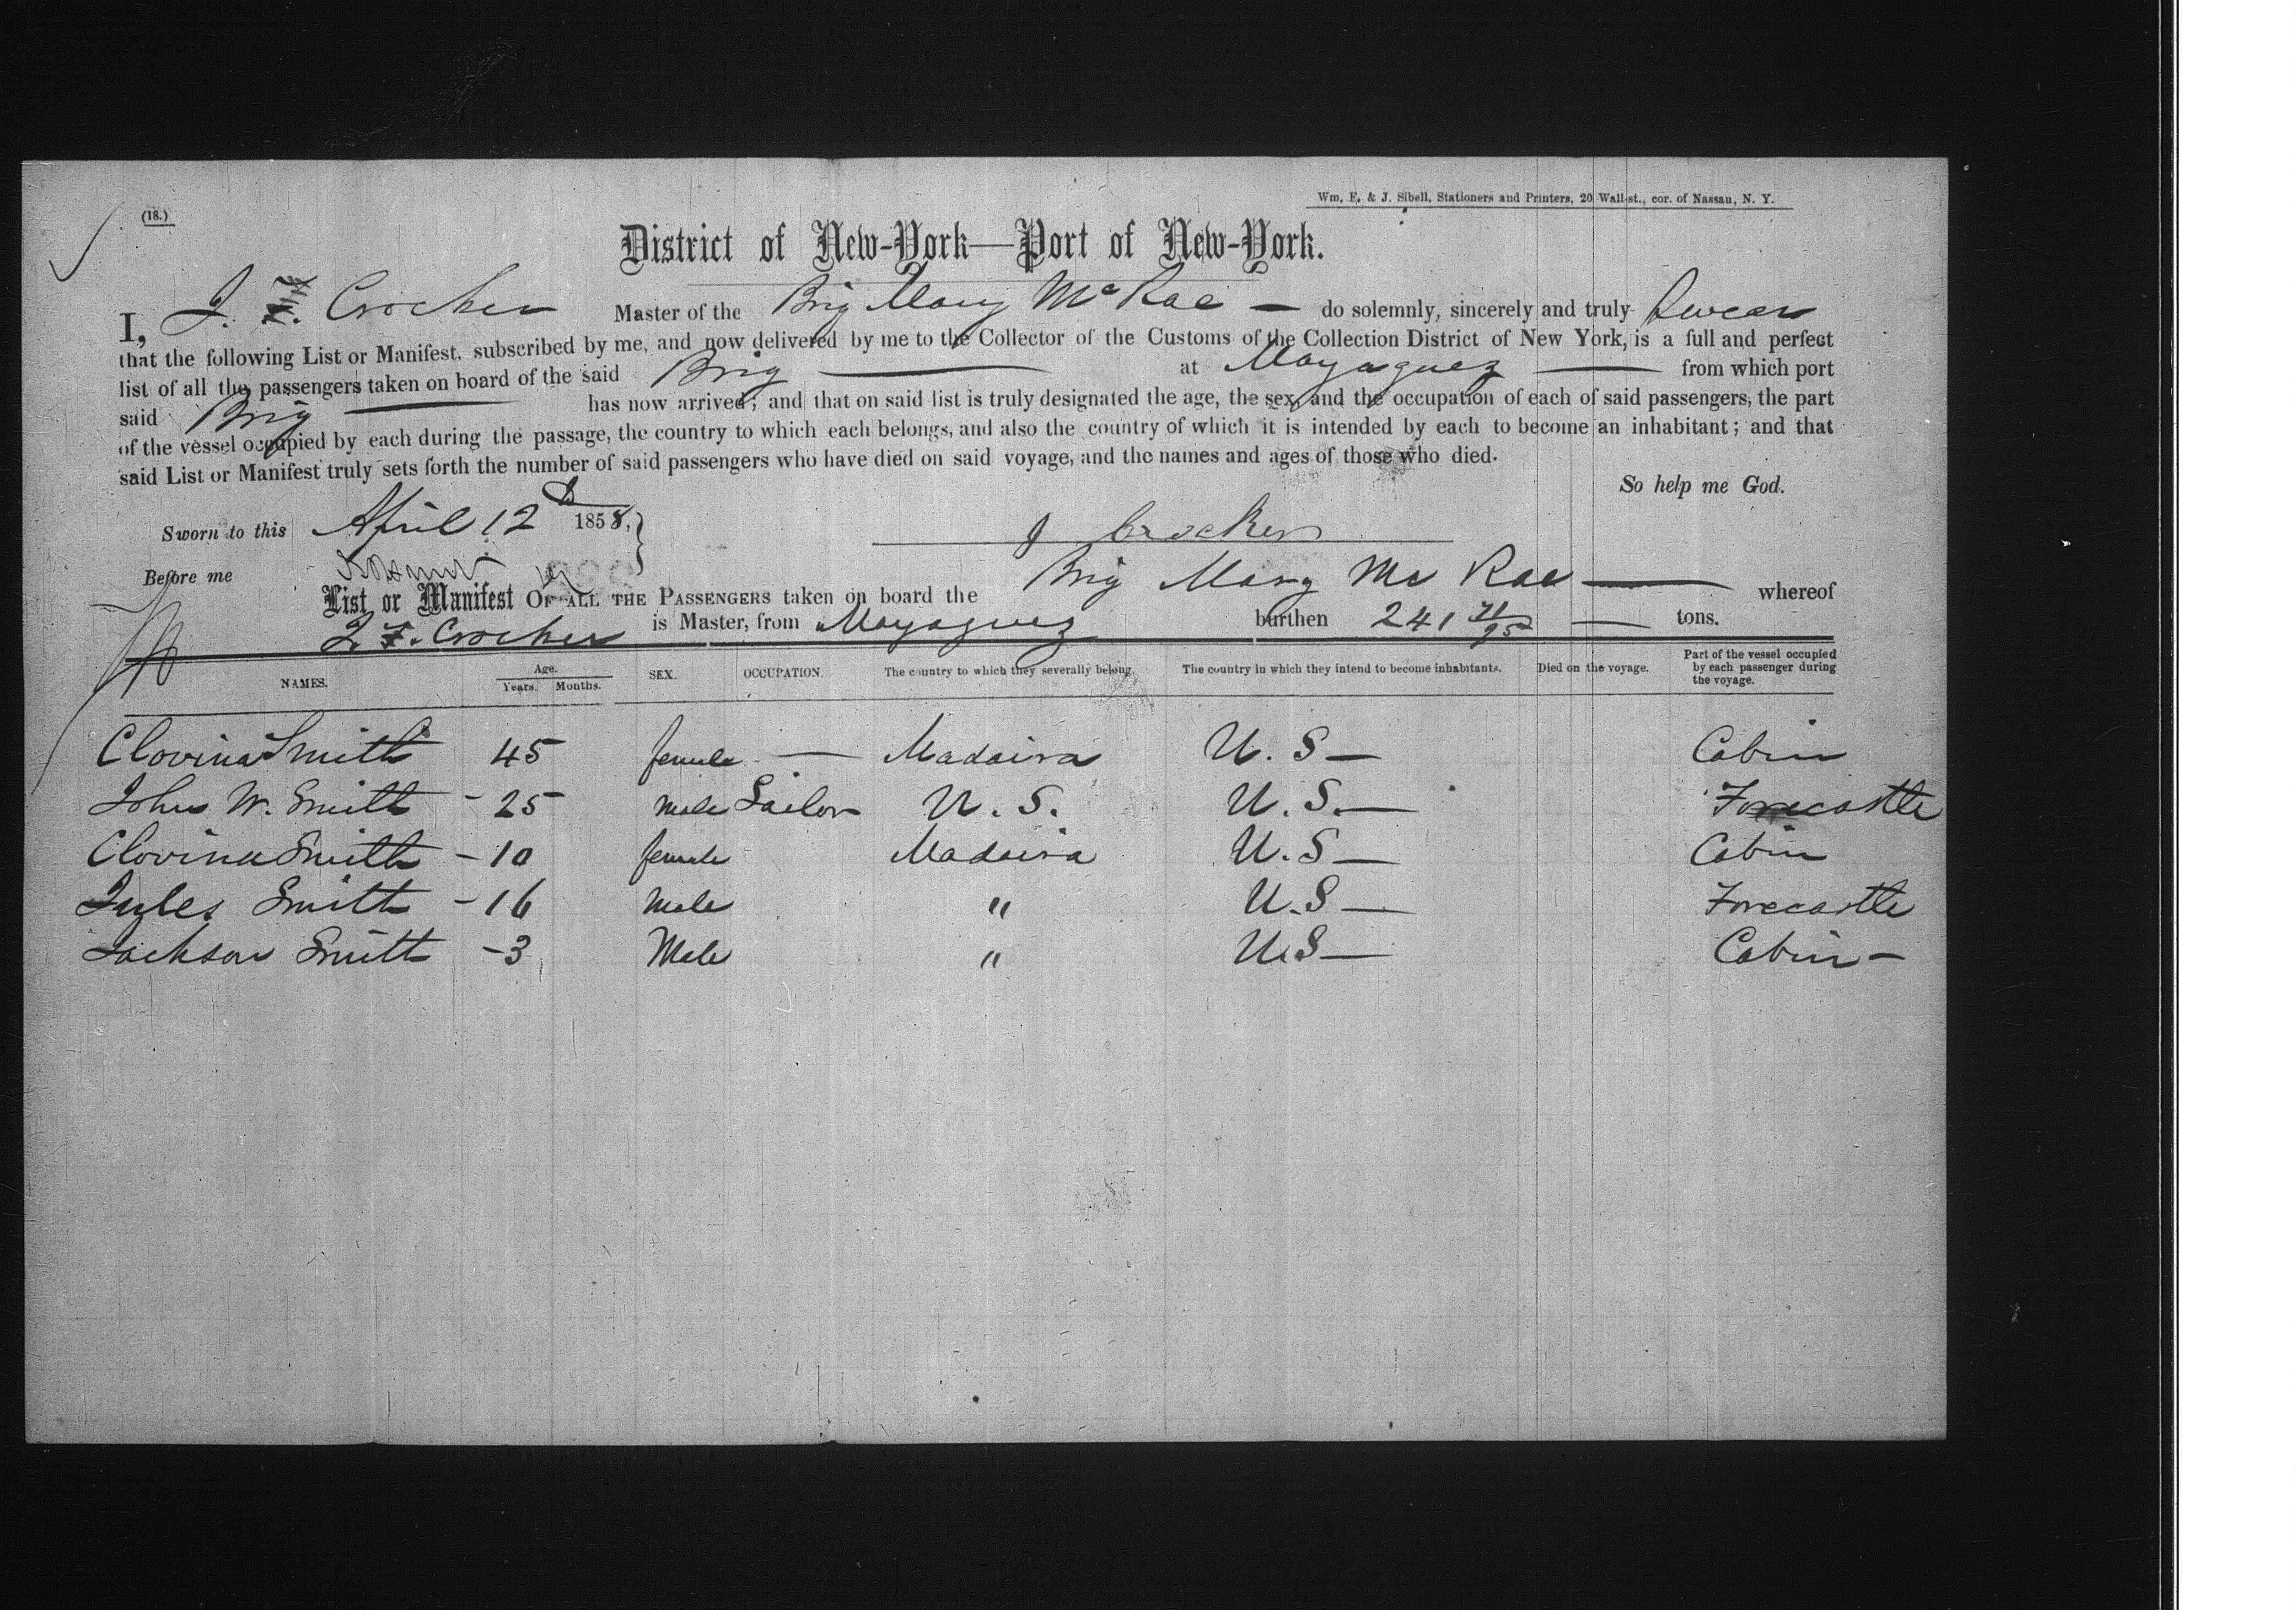 (18.)
Wm. E. & J. Sibell, Stationers and Printers, 20 Wall-st., cor. of Nassau, N. Y.
District of New-York—Port of New-York.
I, J. Crocker Master of the Brig Mary McRae — do solemnly, sincerely and truly Swear
that the following List or Manifest, subscribed by me, and now delivered by me to the Collector of the Customs of the Collection District of New York, is a full and perfect
list of all the passengers taken on board of the said Brig — at Mayaguez — from which port
said Brig — has now arrived; and that on said list is truly designated the age, the sex, and the occupation of each of said passengers, the part
of the vessel occupied by each during the passage, the country to which each belongs, and also the country of which it is intended by each to become an inhabitant; and that
said List or Manifest truly sets forth the number of said passengers who have died on said voyage, and the names and ages of those who died.
So help me God.
Sworn to this April 12th 1858,
J Crocker
Before me
List or Manifest OF ALL THE PASSENGERS taken on board the Brig Mary Mc Rae — whereof
J. F. Crocker is Master, from Mayaguez burthen 241 71/95 — tons.
NAMES. Age. Years. Months. SEX. OCCUPATION. The country to which they severally belong. The country in which they intend to become inhabitants. Died on the voyage. Part of the vessel occupied by each passenger during the voyage.
Clovina Smith 45 female — Madaira U. S — Cabin
John W. Smith - 25 male Sailor U. S. U. S. — Forecastle
Clovina Smith - 10 female Madaira U. S — Cabin
Jules Smith - 16 Male " U. S — Forecastle
Jackson Smith - 3 Male " U. S — Cabin -